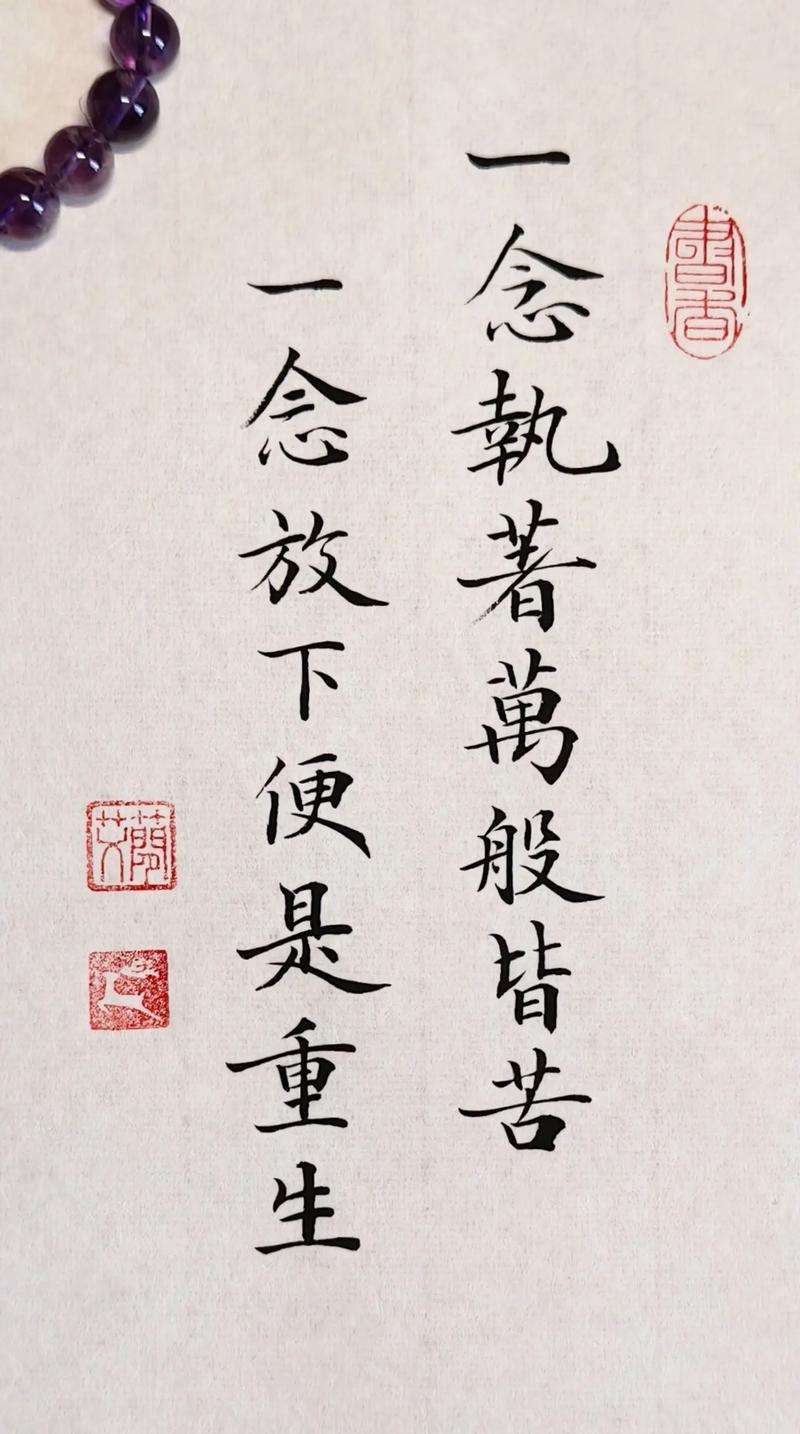 一念執著萬般皆苦
一念放下便是重生
書香